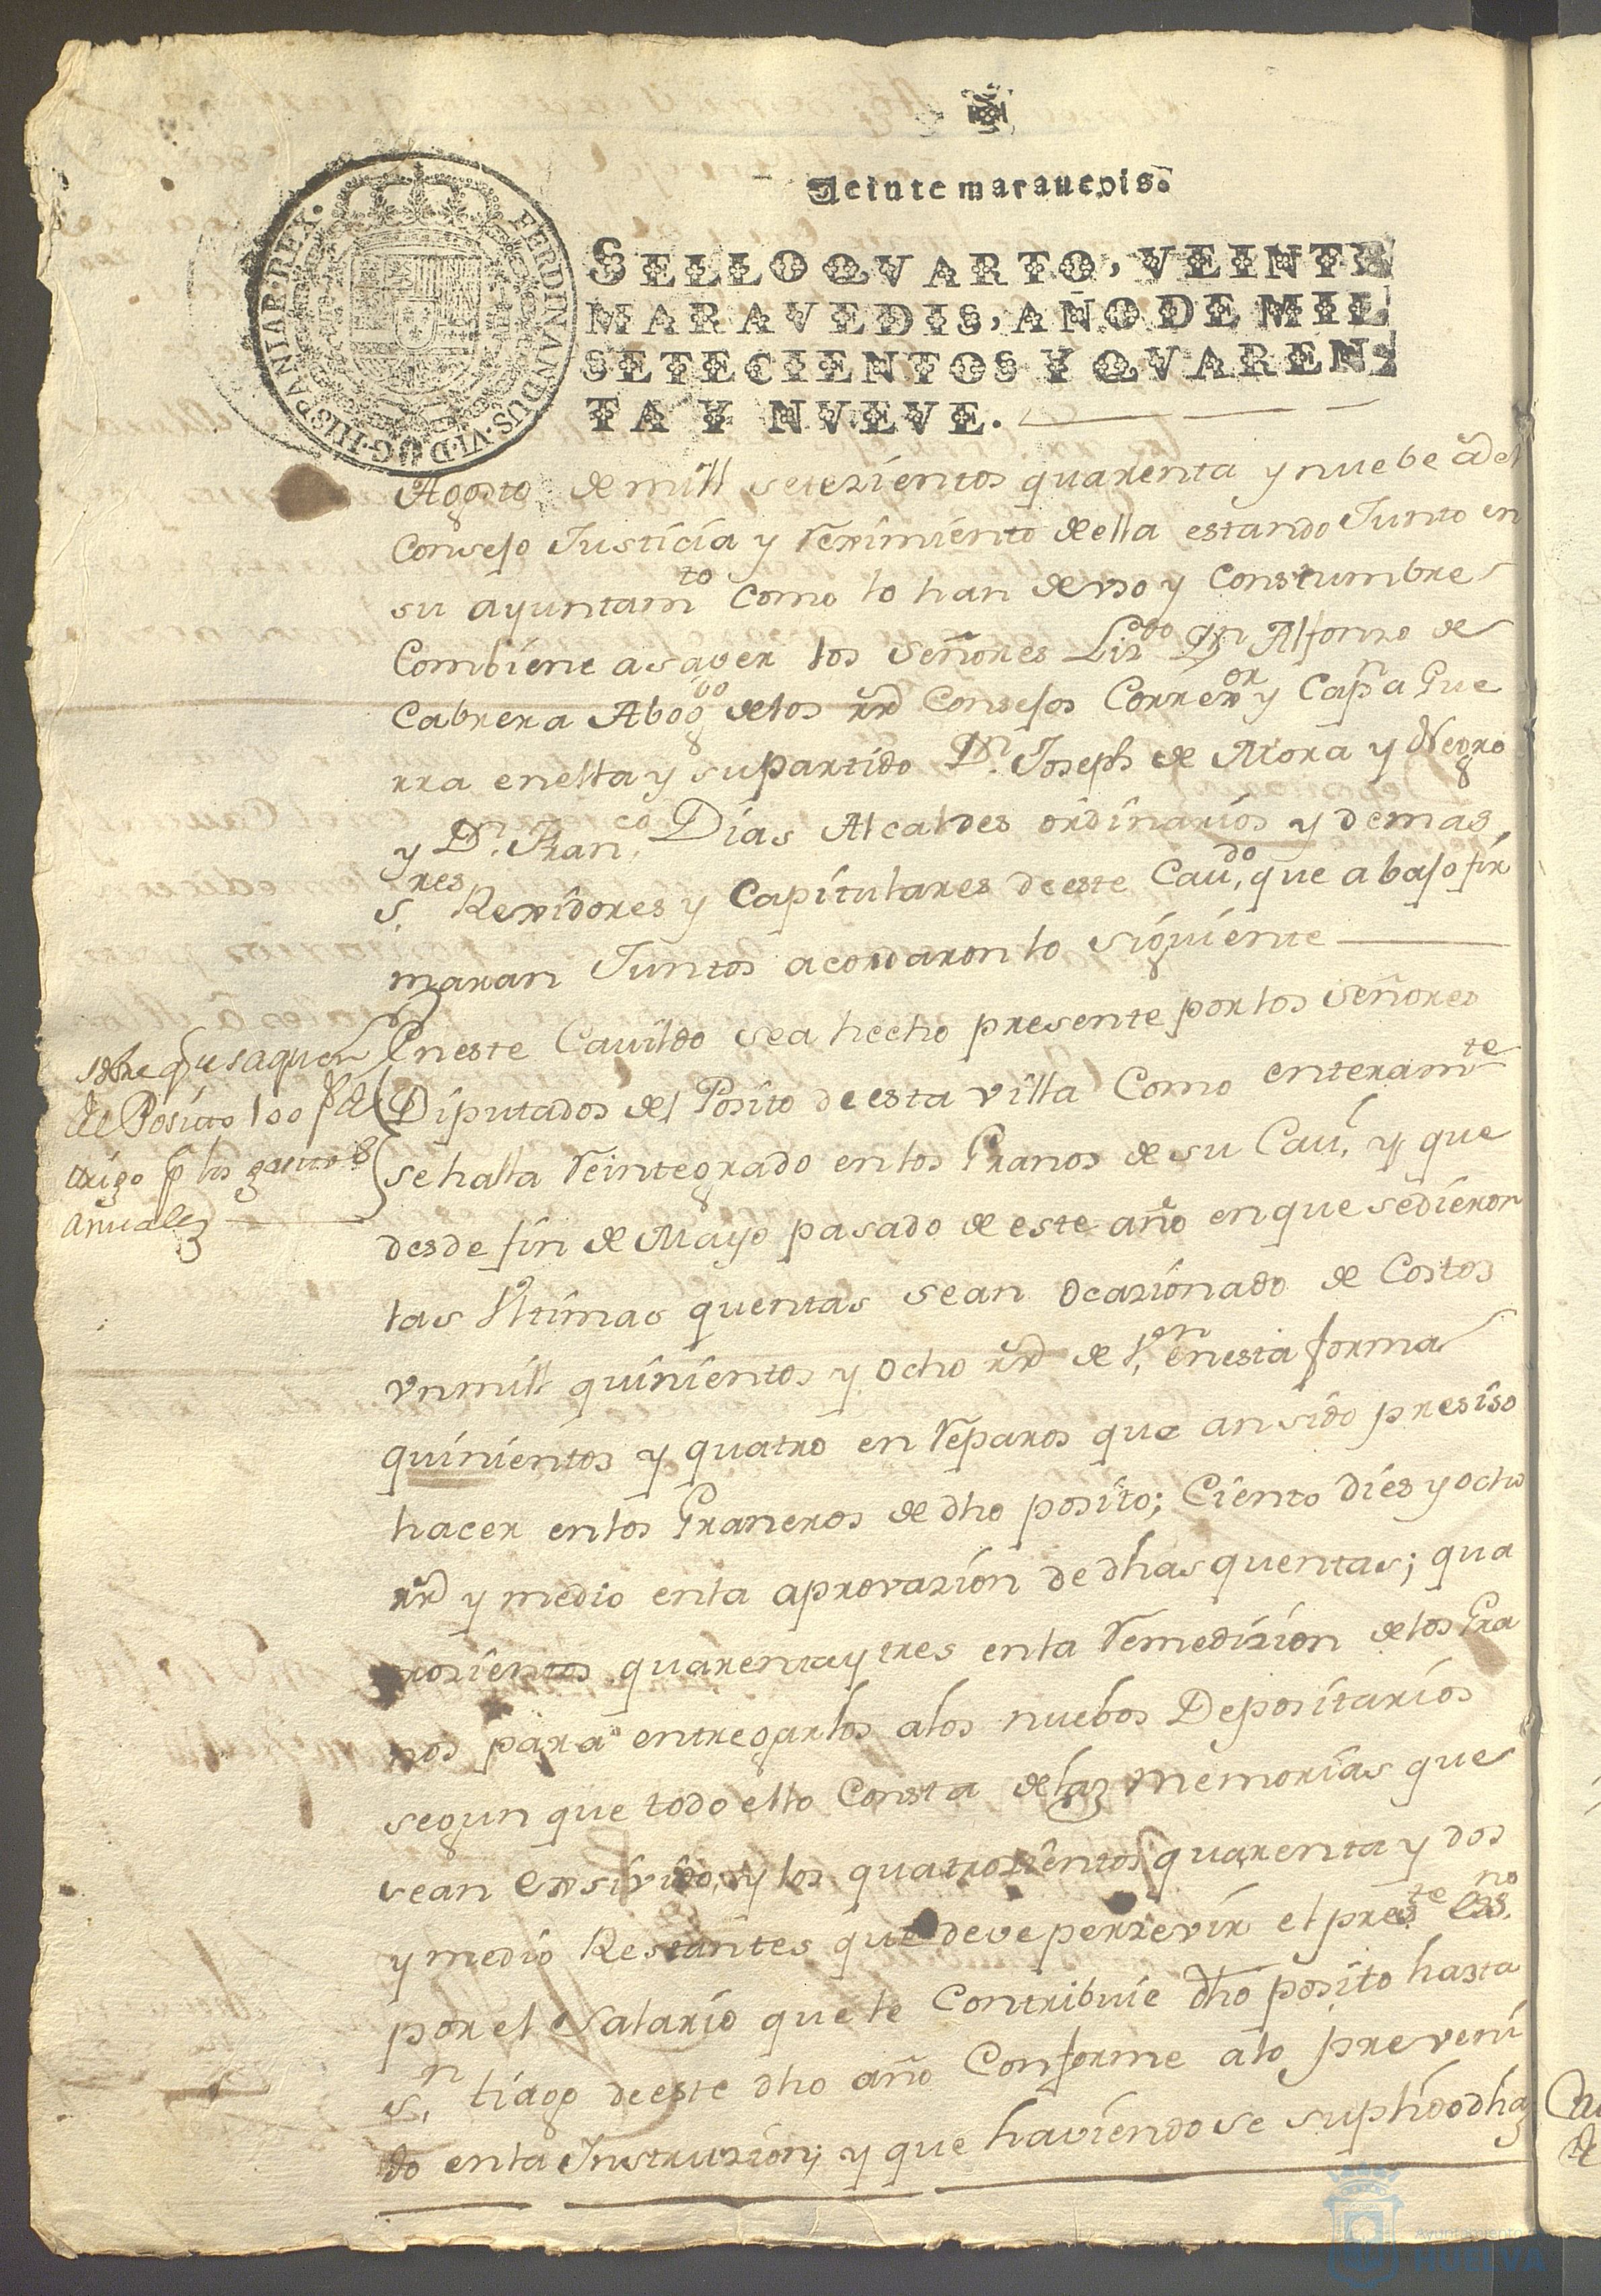 Veinte maravedis.
SELLO QVARTO, VEINTE
MARAVEDIS, AÑO DE MIL
SETECIENTOS Y QVAREN-
TA Y NVEVE.
FERDINANDUS·VI·D·G·HISPANIAR·REX·
Agosto de mill setezientos quarenta y nuebe años el
Consejo Justicia y Reximiento de ella estando Junto en
su ayuntam.to como lo han de vso y Constumbre
Combiene a saver los señores Liz.do Dn Alfonzo de
Cabrera Abog.do de los rr.s Consejos Correx.or y Cap.n a Gue
rra en ella y su partido D.n Joseph de Mora y Negro
y D.n Fran.co Dias Alcaldes ordinarios y demas
S.res Rexidores y Capitulares de este Cav.do, que abajo fir
maran Juntos acordaron lo siguiente
Sobre q.e se saquen
del Posito 100 f.s de
trigo p.a los gastos
anuales
En este Cavildo sea hecho presente por los señores
Diputados del Posito de esta villa Como enteram.te
se halla Reintegrado en los Granos de su Cau.l, y que
desde fin de Mayo pasado de este año en que se dieron
las Vltimas quentas sean Ocazionado de Costos
vn mill quinientos y ocho rr.s de v.on en esta forma
quinientos y quatro en Reparos que an sido presiso
hacer en los Graneros de dho posito; Ciento dies y ocho
rr.s y medio en la aprovazion de dhas quentas; qua
trozientos quarenta y tres en la Remedizion de los Gra
nos para entregarlos a los nuebos Depositarios
segun que todo ello Consta de las memorias que
sean Exsivido, y los quatrozientos quarenta y dos
y medio Restantes que deve perzevir el pres.te ess.no
por el Salario que le Contribuie dho posito hasta
S.n tiago de este dho año Conforme a lo preveni
do en la Instruzion; y que haviendose suplido dhas
Ayuntamiento
HUELVA